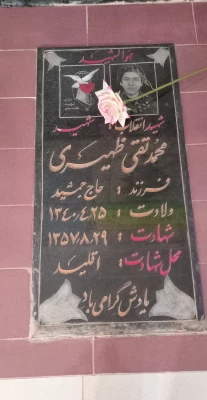 هوالشهید
شهید انقلاب شهید
محمد تقی ظهیری
فرزند : حاج جمشید
ولادت : ۱۳۴۰.۴.۲۵
شهادت : ۱۳۵۷.۸.۲۹
محل شهادت : اقلید
یادش گرامی باد